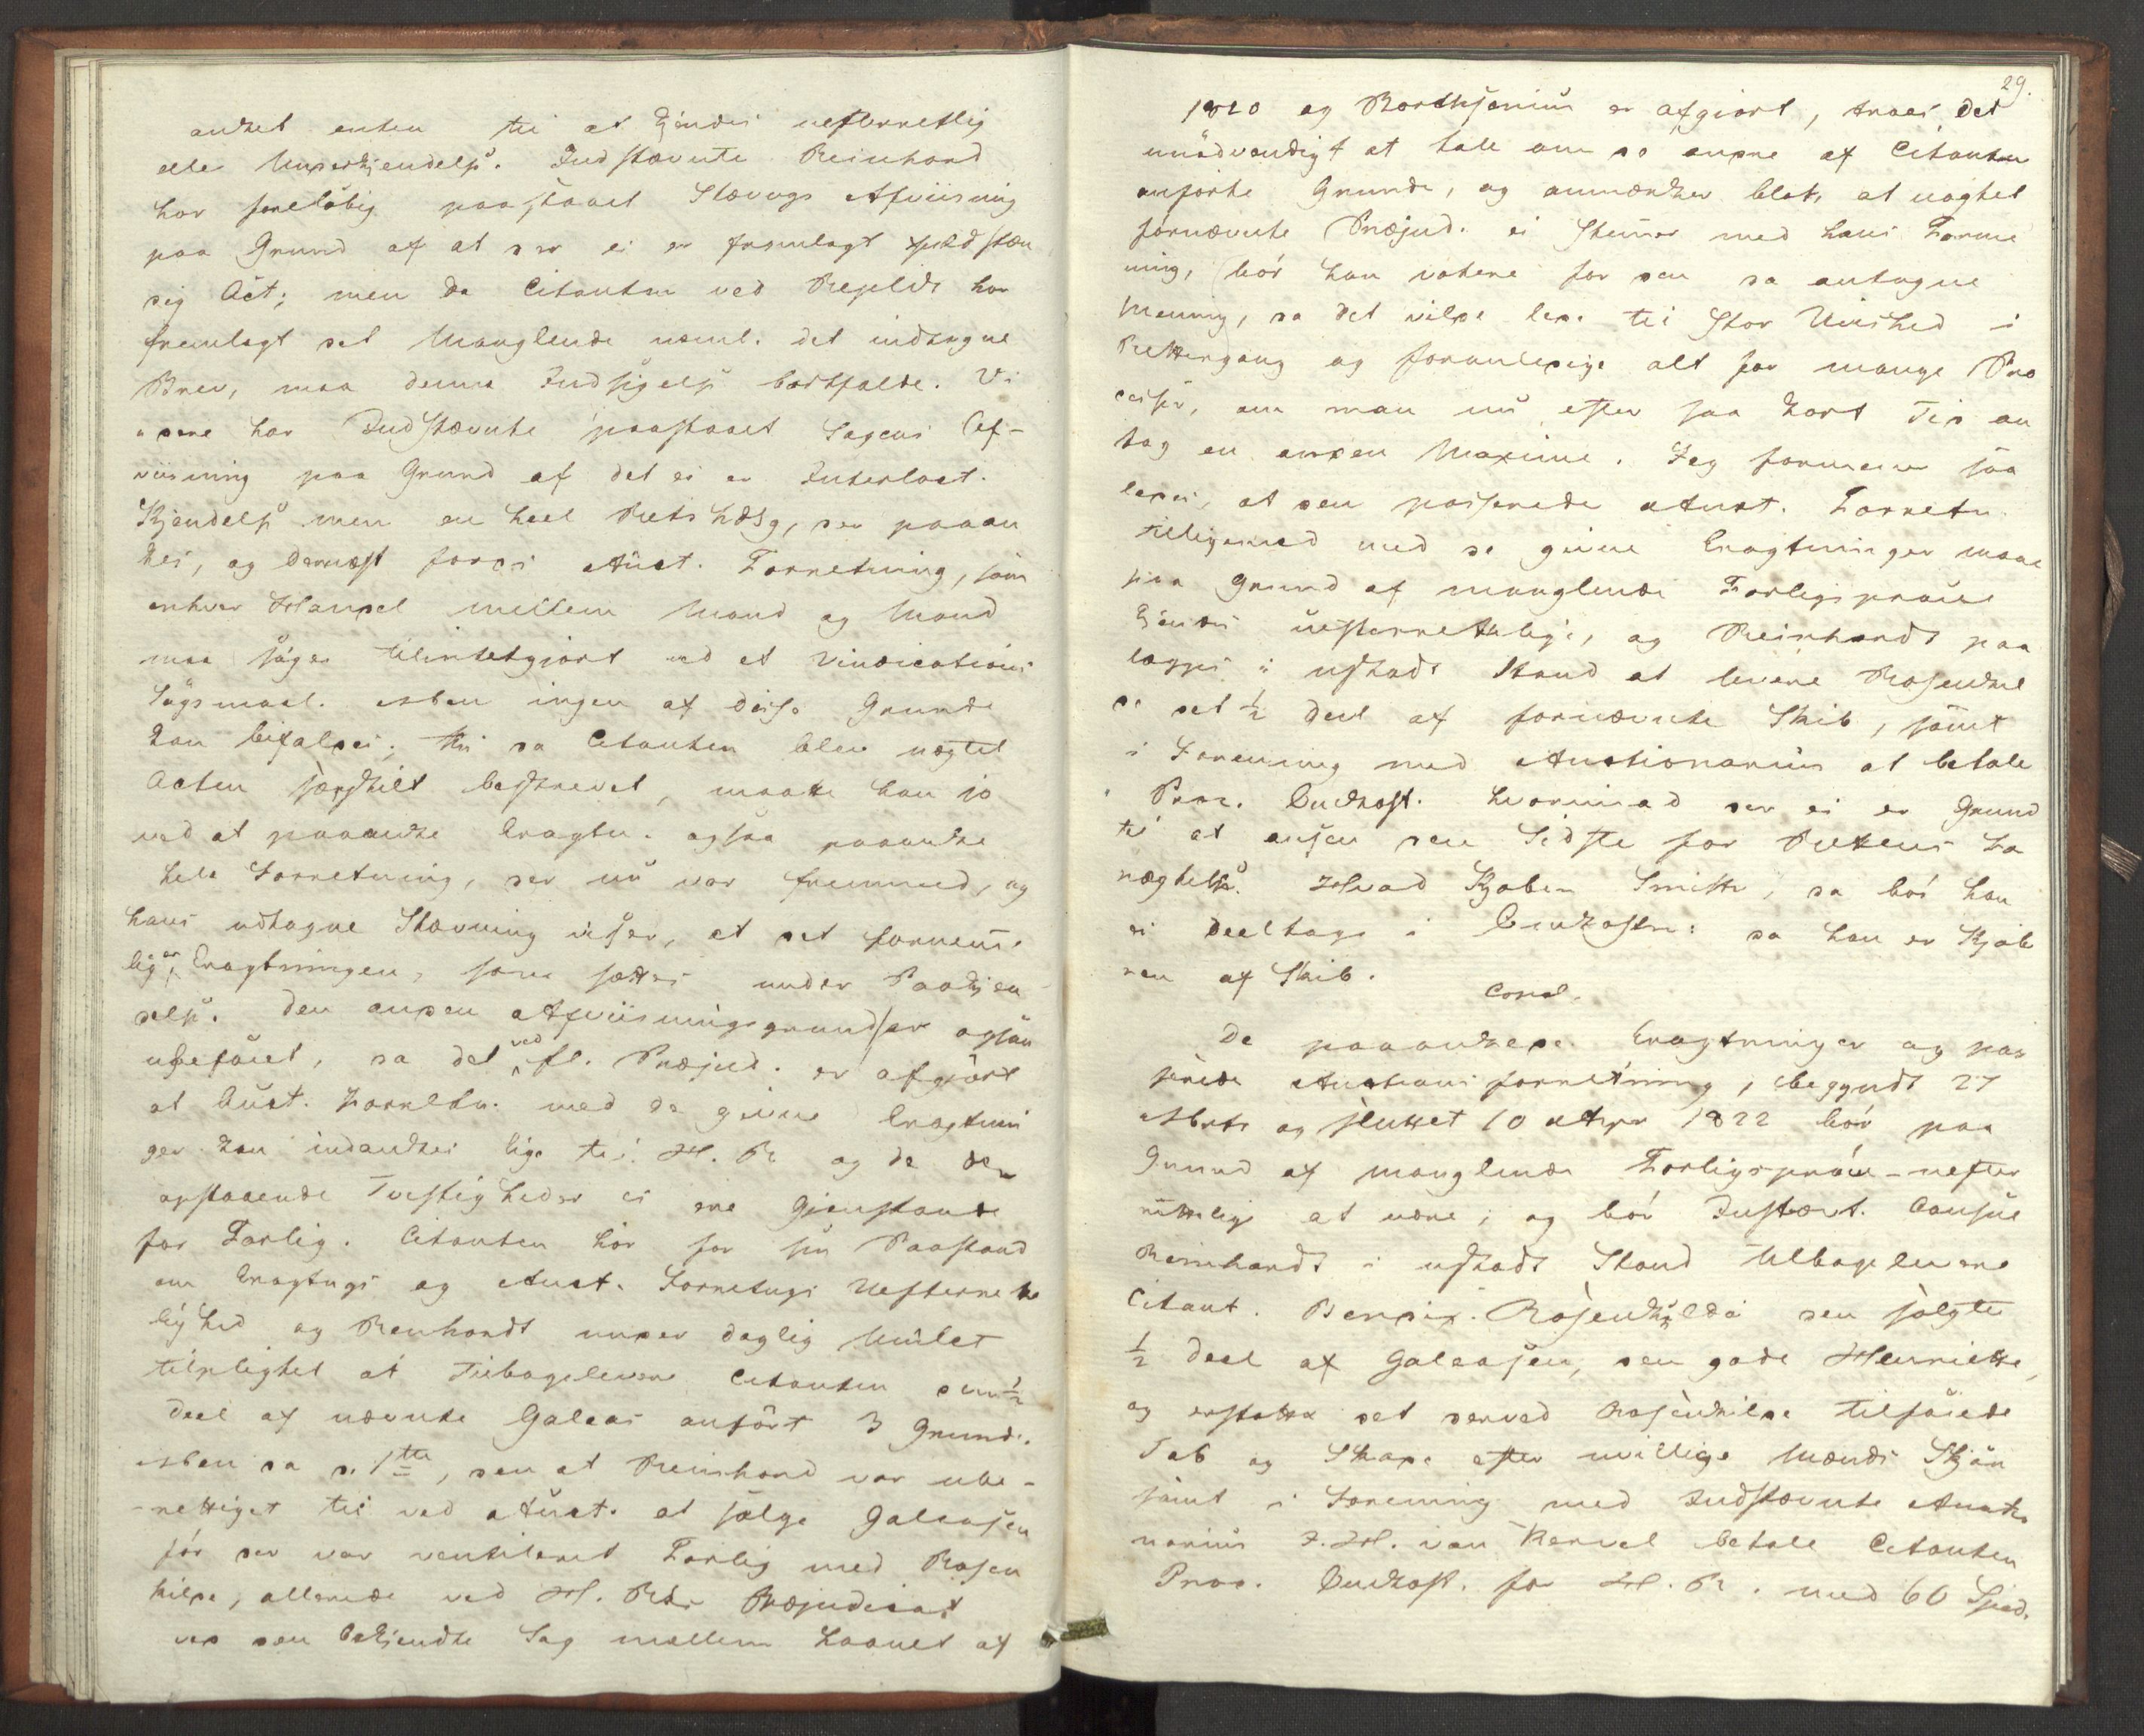 anket enten til at kjendes uefterretlig
eller Underkjendelse. Indstævnte Reinhard
har foreløbig paastaaet Stævngs Afviisning
paa Grund af at der ei er fremlagt
sig Act; men da Citanten ved Replids har
fremlagt det Manglende neml. det indtagne
Brev, maa denne Indsigelse bortfalde. Vi
dere har Indstævnte paastaaet Sagens Af-
viisning paa Grund af det ei er Interloct.
Kjendelse men en heel Retshdlg, der paaan
kes, og dernæst fordi Auct. Forretning, som
enhver Handel mellem Mand og Mand
maa søges tilintetgjort ved et Vindications
Søgsmaal. Men ingen af disse Grunde
kan bifaldes; thi da Citanten blev nægtet
Acten særskilt beskrevet, maatte han jo
ved at paaanke Eragtn. ogsaa paaanke
hele Forretning, der nu var fremmed, og
hans udtagne Stævning viser, at det fornem.
lig er Eragtningen, som sættes under Paakjen
delse. Den anden Afviisningsgrund er ogsaa
ubeføiet, da det ved fl. Præjud. er afgjort
at Auct. Forretn. med de givne Eragtnin
ger kan indankes lige til H. R. og da de
opstaaende Tvistigheder ei ere Gjenstande
for Forlig. Citanten har for sin Paastand
om Eragtngs og Auct. Forretngs Uefterrette
lighed og Reinhardt under daglig Mulct
tilpligtet at Tilbagelevere Citanten den ½
Deel af nævnte Galeas anført 3 Grunde.
Men da d. 1ste, den at Reinhard var ube-
-rettiget til ved Auct. at sælge Galeasen
før der var ventileret Forlig med Rosen
kilde, allerede ved H. Rets Præjudicat
ved den bekjendte Sag mellem Laanet af
29.
1820 og Borthsenius er afgjort, troes det
unødvendigt at tale om de andre af Citanten
anførte Grunde, og anmærker blot, at uagtet
fornævnte Præjud. ei Stemmer med hans Forme
ning, bør han votere for den da antagne
Mening, da det vilde lede til Stor Uvished i
Rettergang og foranledige alt for mange Pro
cesser, om man nu efter saa kort Tid an
tog en anden Maxime. Jeg formener saa
ledes, at den passerede Auct. Forretn.
tilligemed med de givne Eragtninger maae
paa Grund af manglende Forligsprøve
kjendes uefterrettelige, og Reinhardt paa
lægges i uskadt Stand at levere Rosenkil
de det ½ Deel af fornævnte Skib, samt
i Forening med Auctionarius at betale
Proc. Omkost. hvorimod der ei er Grund
til at ansee den Sidste for Rettens Fo
nægtelse. Hvad Kjøber Smith, da bør han
ei deeltage i Omkostn: da han er Kjøbe
ren af Skib.
Concl.
De paaankede Eragtninger og pas
serede Auctions forretning, begyndt 27
Marts og sluttet 10 Apr 1822 bør paa
Grund af manglende Forligsprøve uefter
rettelige at være, og bør Indstævt. Consul
Reinhardt i uskadt Stand tilbagelevere
Citant. Rosenkilde den solgte
½ Deel af Galeasen, den gode Henriette,
og erstatte det derved Rosenkilde tilføiede
Tab og Skade efter uvillige Mænds Skjøn
samt i Forening med Indstævnte Auctio
narius F. H. van Kervel betale Citanten
Proc. Omkost. for H. R. med 60 Spd.